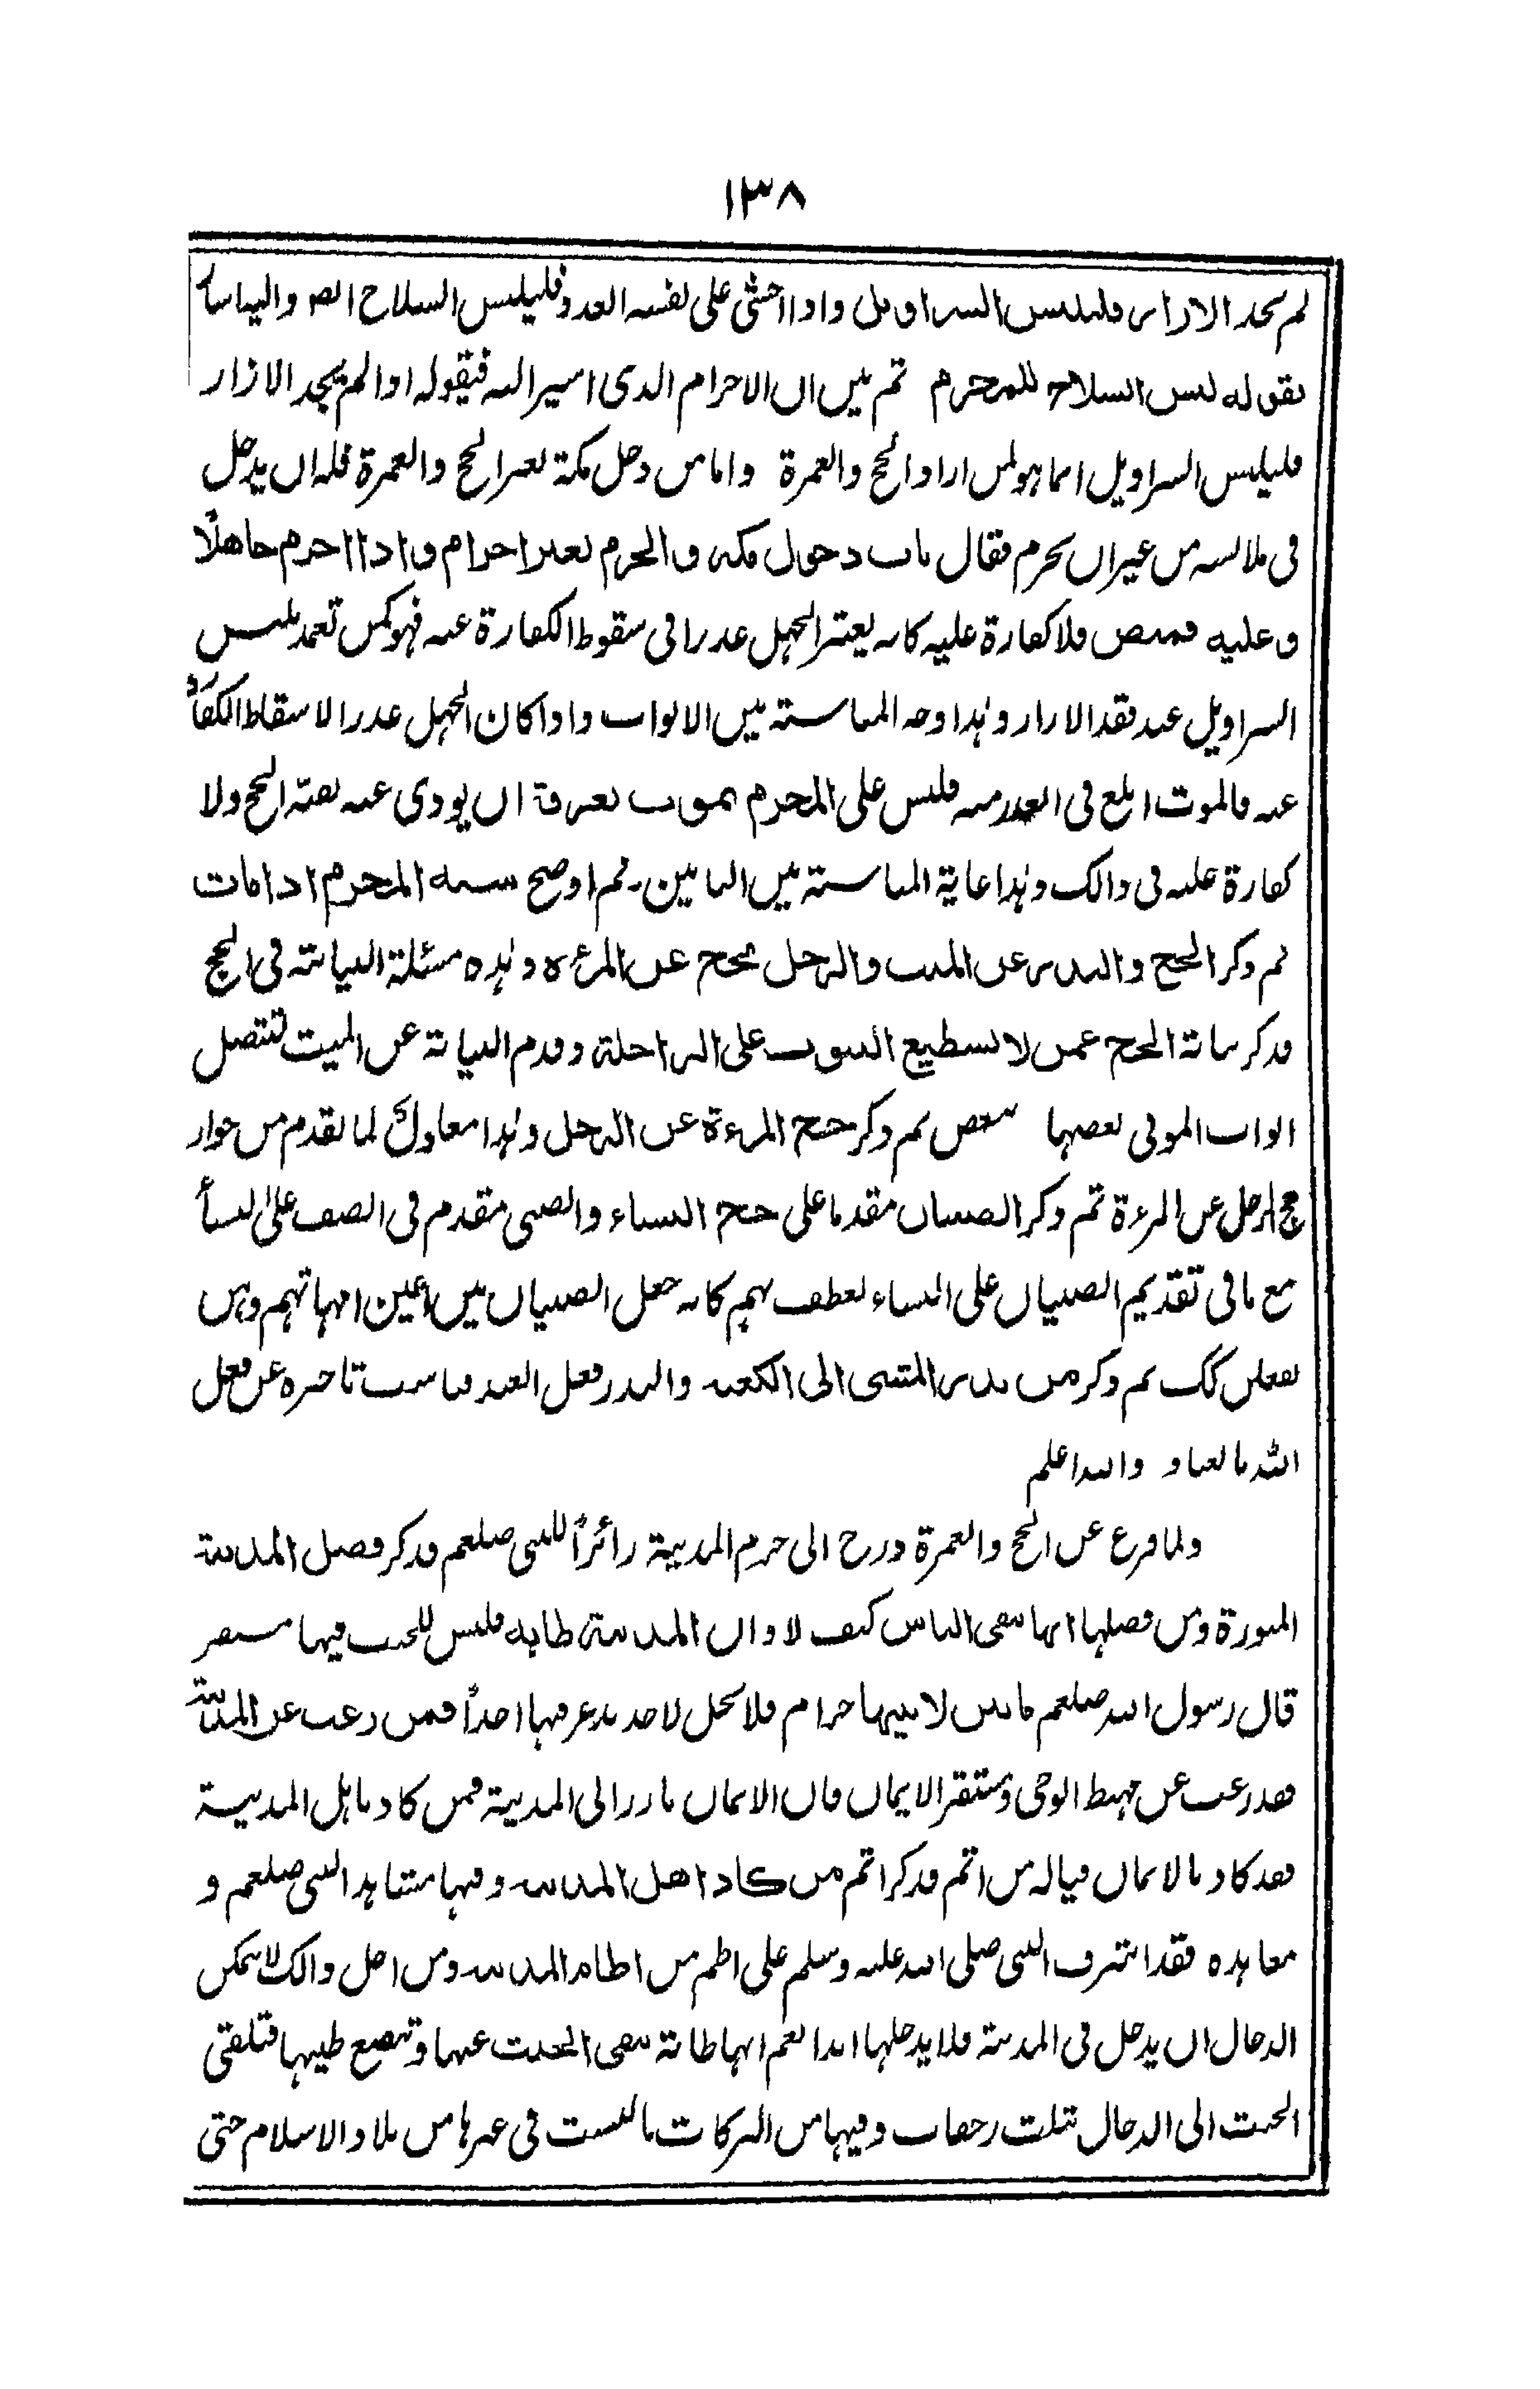 ١٣٨
لم يجد الازار فليلبس السراويل واذا خشى على نفسه العدو فليلبس السلاح ايضا واليه اشار
بقوله لبس السلاح للمحرم ثم بين ان الاحرام الذى اشير اليه فيقوله اذا لم يجد الازار
فليلبس السراويل انما هو لمن اراد الحج والعمرة واما من دخل مكة لغير الحج والعمرة فله ان يدخل
فى ملابسه من غير ان يحرم فقال باب دخول مكه و الحرم بغير احرام و اذا احرم جاهلًا
و عليه قميص فلا كفارة عليه كانه يعتبر الجهل عذرا فى سقوط الكفارة عنه فهو كمن تعمد بلبس
السراويل عند فقد الازار وهذا وجه المناسبة بين الابواب واذا كان الجهل عذرا لاسقاط الكفارة
عنه فالموت ابلغ فى العذر منه فليس على المحرم يموت بعرفة ان يودى عنه بقية الحج ولا
كفارة عليه فى ذالك وهذا غاية المناسبة بين البابين۔ ثم اوضح سنة المحرم اذا مات
ثم ذكر الحج والنذر عن الميت والرجل يحج عن المرءه وهذه مسئلة النيابة فى الحج
فذكر نيابة الحج عمن لا يستطيع الثبوت على الراحلة وقدم النيابة عن الميت لتتصل
ابواب الموتى بعضها ببعض ثم ذكر حج المرءة عن الرجل وهذا معاول لما تقدم من جواز
حج الرجل عن المرءة ثم ذكر الصبيان مقدما على حج النساء والصبى متقدم فى الصف على النسأ
مع ما فى تقديم الصبيان على النساء لعطف بهم كانه جعل الصبيان بين اعين امهاتهم وهن
يفعلن كك ثم ذكر من نذر المشى الى الكعبه والنذر فعل العبد فناسب تاخيره عن فعل
الله بالعباد والله اعلم
ولما فرغ عن الحج والعمرة درج الى حرم المدينة زائرًا للنبى صلعم فذكر فضل المدينة
المنورة ومن فضلها انها تنفى الناس كيف لا وان المدينة طابه فليس للخبث فيها مستقر
قال رسول الله صلعم مابين لابتيها حرام فلا يحل لاحد يذعر فيها احدًا فمن رغب عن المدينة
فقد رغب عن مهبط الوحى ومستقر الايمان فان الايمان يارز الى المدينة فمن كاد باهل المدينة
فقد كاد بالايمان فياله من اثم فذكر اثم من كاد اهل المدينه وفيها مشاهد النبى صلعم و
معاهده فقد اشرف النبى صلى الله عليه وسلم على اطم من اطام المدينه ومن اجل ذالك لا يمكن
الدجال ان يدخل فى المدينة فلا يدخلها ابدا نعم انها طابة تنفى الخبث عنها وتنصع طيبها فتلقى
الخبث الى الدجال بثلث رجفات وفيها من البركات ما ليست فى غيرها من بلاد الاسلام حتى